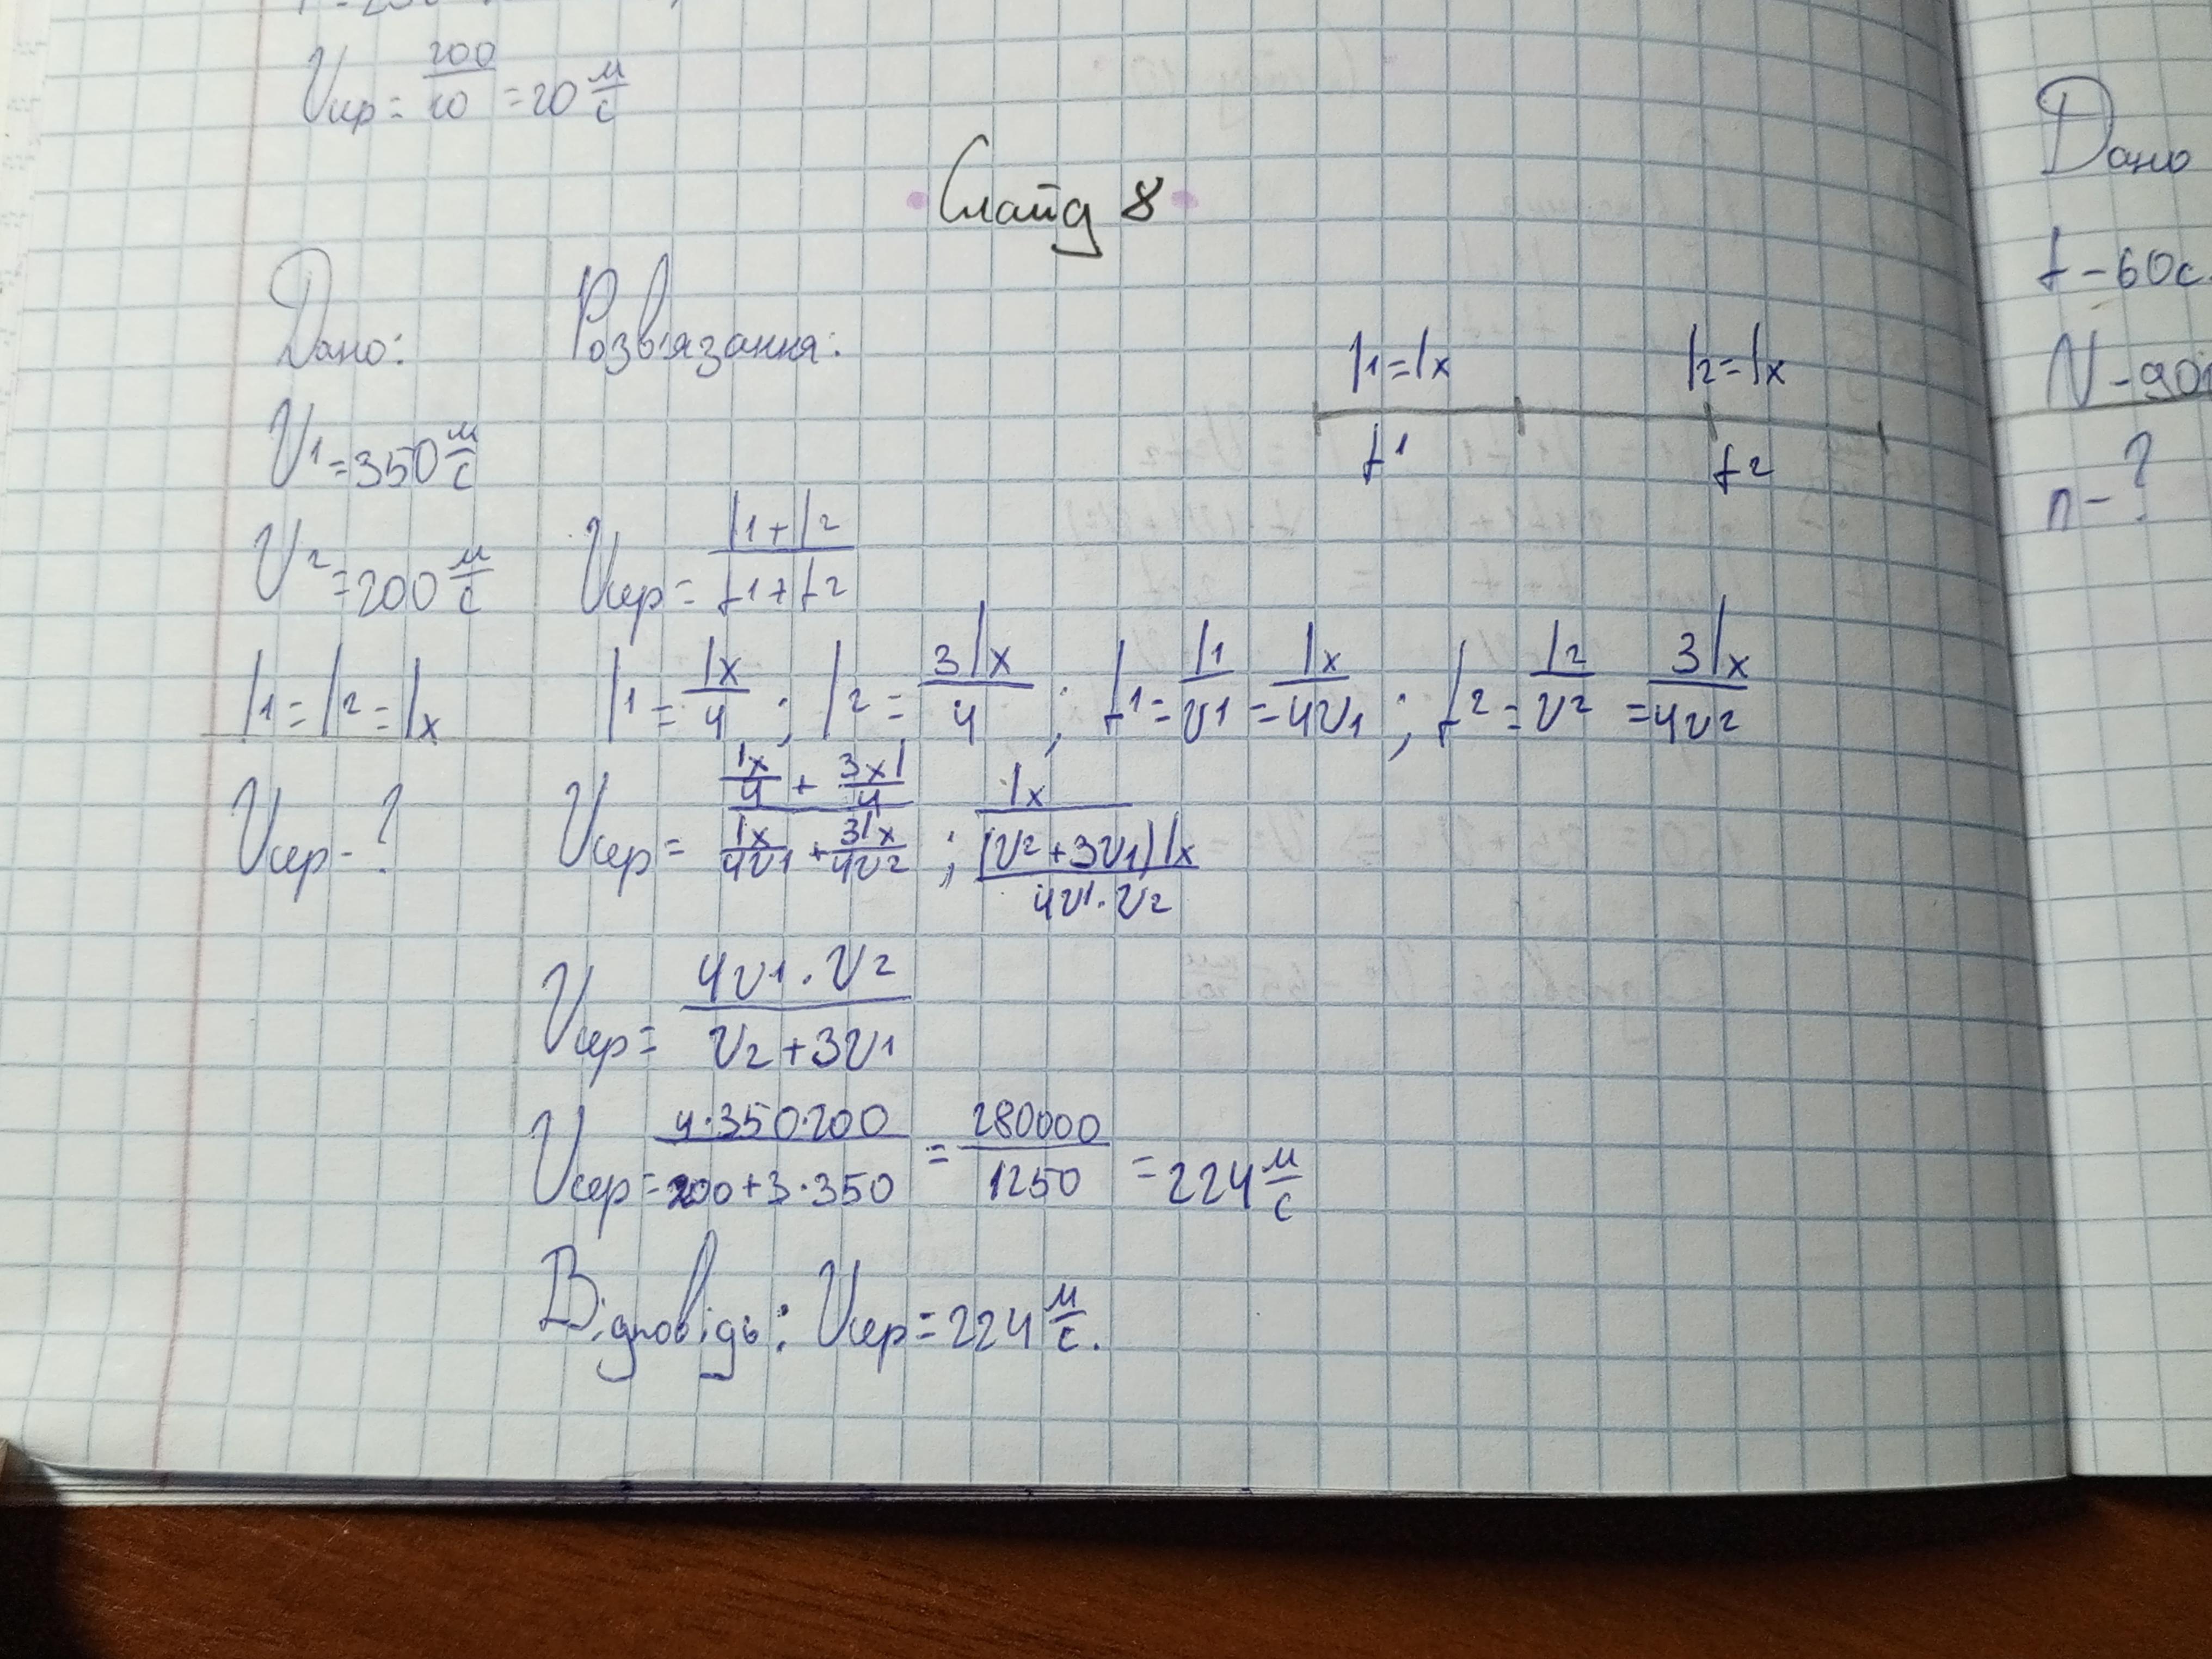 Vср = 200/10 = 20 м/с
Слайд 8
Дано:
Розв'язання:
l1=lx
l2=lx
t1
t2
V1=350 м/с
V2=200 м/с
l1=l2=lx
Vср-?
Vср = (l1+l2)/(t1+t2)
l1 = lx/4 ; l2 = 3lx/4 ; t1 = l1/v1 = lx/4v1 ; t2 = l2/v2 = 3lx/4v2
Vср = (lx/4 + 3xl/4)/(lx/4v1 + 3lx/4v2) ; lx/((v2+3v1)lx/4v1·v2)
Vср = 4v1·v2/v2+3v1
Vср = 4·350·200/200+3·350 = 280000/1250 = 224 м/с
Відповідь: Vср = 224 м/с.
Дано
t-60с
N-90
n-?